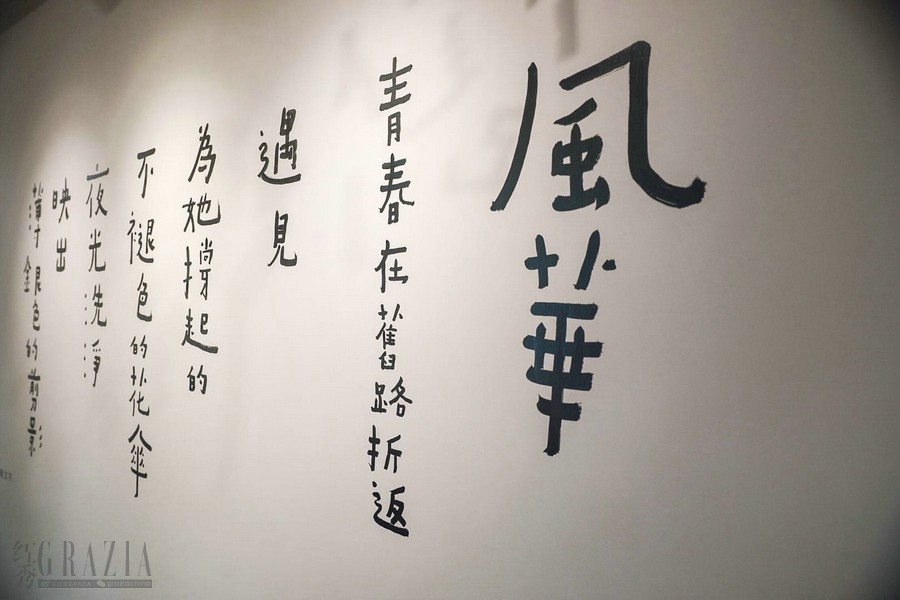 風華
青春在舊路折返
遇見
為她撐起的
不褪色的花傘
夜光洗淨
映出
薄銀色的剪影
红秀GRAZIA